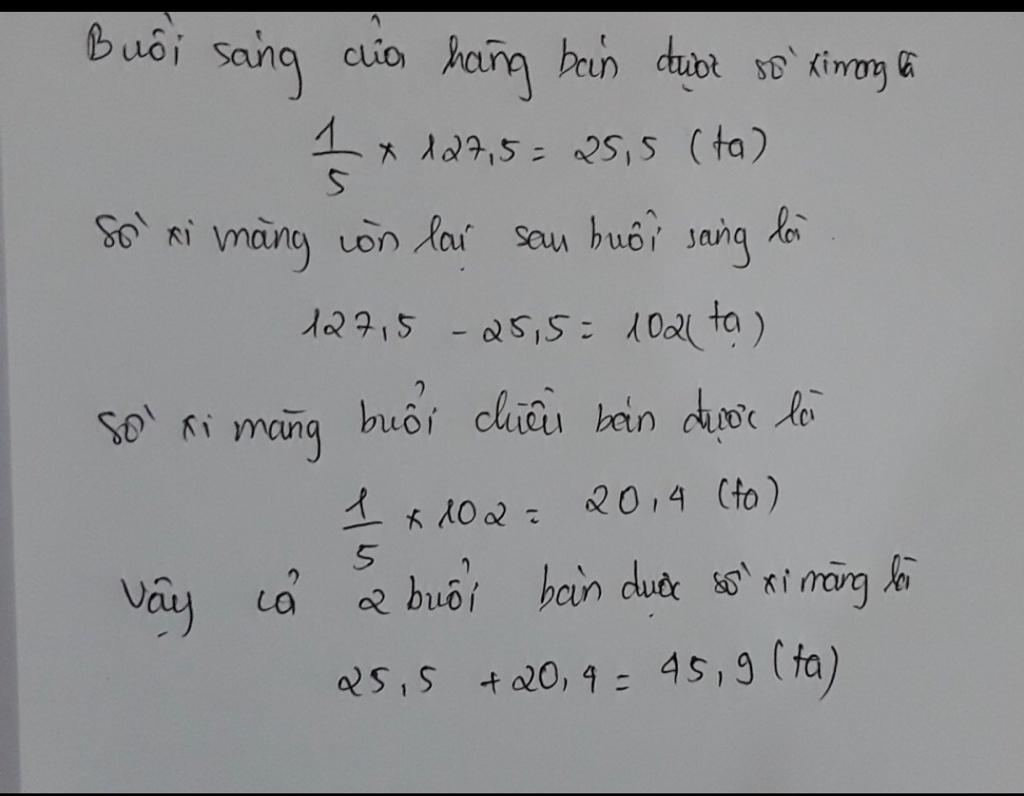 Buổi sáng cửa hàng bán được số ximăng là
1/5 × 127,5 = 25,5 (tạ)
Số xi măng còn lại sau buổi sáng là
127,5 - 25,5 = 102 (tạ)
Số xi măng buổi chiều bán được là
1/5 × 102 = 20,4 (tạ)
Vậy cả 2 buổi bán được số xi măng là
25,5 + 20,4 = 45,9 (tạ)